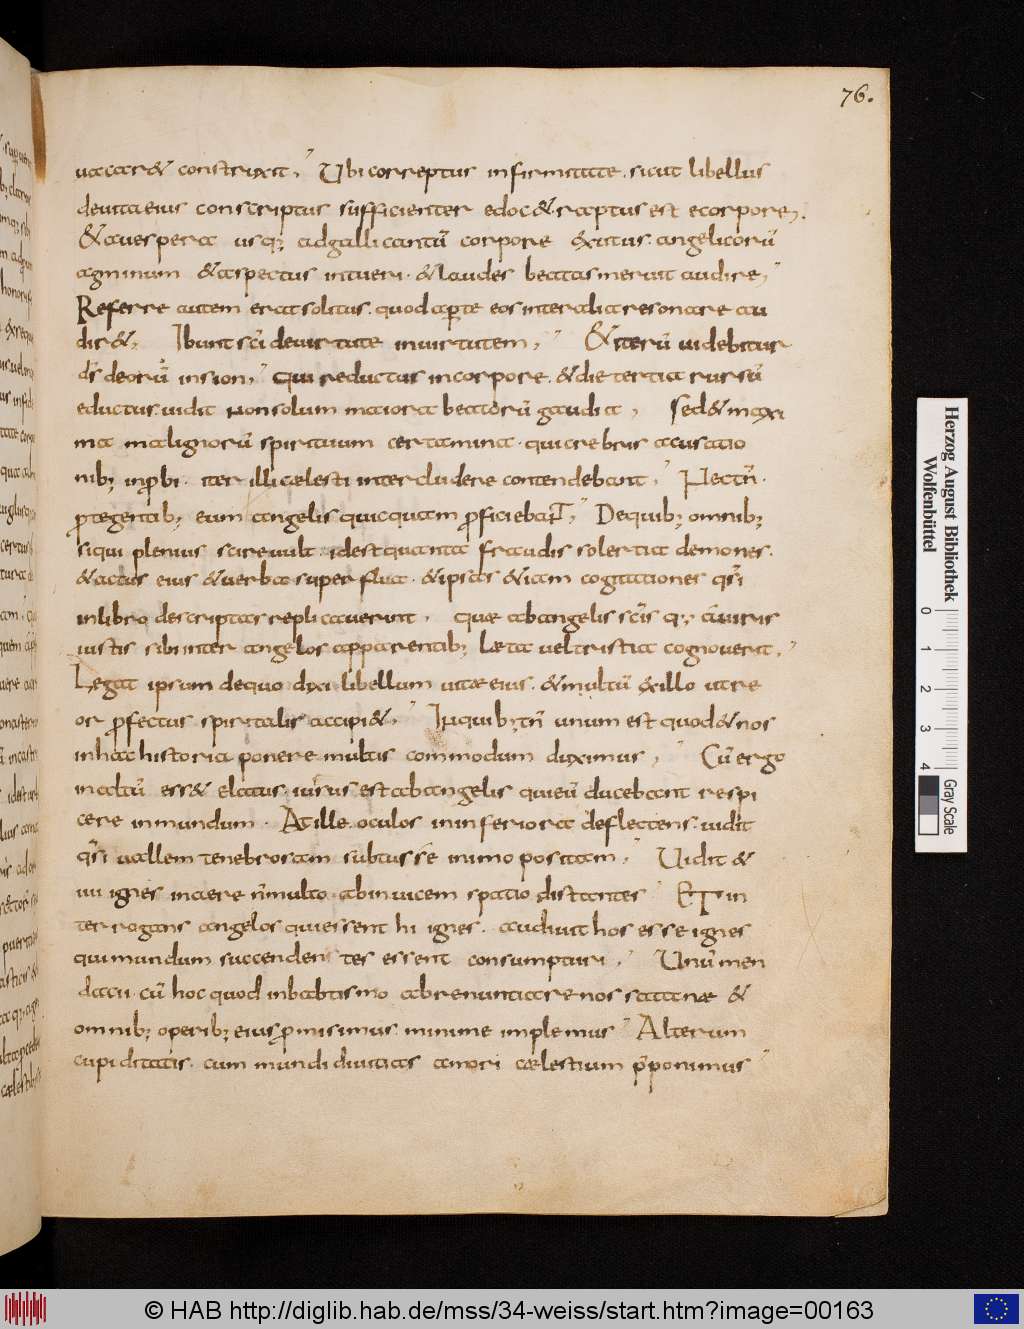 76.
uacar& construxit, Ubi correptus infirmitate. sicut libellus
deuita eius conscriptus sufficienter edoc& raptus est ecorpore,.
& auespera usq; adgalli cantū corpore exutus. angelicorū
agminum & aspectus intueri. & laudes beatas meruit audire,
Referre autem erat solitus. quod aperte eos inter alia resonare au
dir&, Ibunt sci deuirtute inuirtutem, & iterū uidebitur
ds deorū insion, qui reductus incorpore. & die tertia rursū
eductus. uidit non solum maiora beatorū gaudia, Sed & maxi
ma malignorū spirituum certamina. qui crebris acusatio
nib; inprobi. iter illi caelesti intercludere contendebant, Nec tn̄.
ptegentib; eum angelis quicquam pficiebant, De quib; omnib;
siqui plenius scire uult. idest quanta fraudis solertia demones.
& actus eius & uerba superflua. & ipsas & iam cogitationes qsi
inlibro descriptas replicauerint. quae abangelis scis q; auiris
iustis sibi inter angelos apparentib; Laeta uel tristia cognouerit,
Legat ipsum de quo dixi libellum uitae eius. & multū exillo ut re
or pfectus spiritalis accipi&, In quib; tn̄ unum est quod & nos
in hac historia ponere multis commodum duximus, Cū ergo
inaltū ess& elatus. iusus est abangelis qui eū ducebant respi
cere inmundum. At ille oculos ininferiora deflectens. uidit
qsi uallem tenebrosam subtus se inimo positam, Uidit &
iiii ignes inaere n̄ multo abinuicem spatio distantes Et in
terrogans angelos qui essent hi ignes. audiuit hos esse ignes
qui mundum succendentes essent consumpturi, Unū men
dacii. cū hoc quod inbabtismo abrenuntiare nos satanae &
omnib; operib; eius pmisimus minime implemus Alterum
cupiditatis. cum mundi diuitias amori caelestium pponimus
Herzog August Bibliothek
Wolfenbüttel
0 1 2 3 4
Gray Scale
© HAB http://diglib.hab.de/mss/34-weiss/start.htm?image=00163